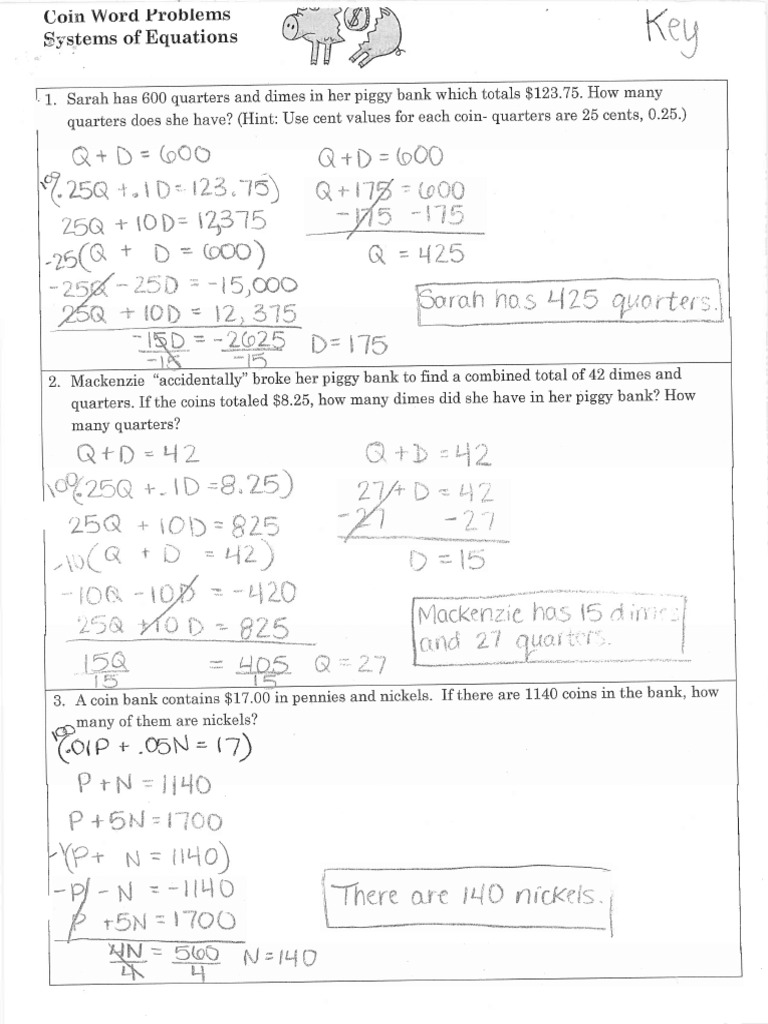 Coin Word Problems
Systems of Equations
Key
1. Sarah has 600 quarters and dimes in her piggy bank which totals $123.75. How many
quarters does she have? (Hint: Use cent values for each coin- quarters are 25 cents, 0.25.)
Q + D = 600
100(.25Q + .1D = 123.75)
25Q + 10D = 12,375
-25(Q + D = 600)
-25Q - 25D = -15,000
25Q + 10D = 12,375
-15D = -2625 D = 175
-15 -15
Q + D = 600
Q + 175 = 600
-175 -175
Q = 425
Sarah has 425 quarters.
2. Mackenzie "accidentally" broke her piggy bank to find a combined total of 42 dimes and
quarters. If the coins totaled $8.25, how many dimes did she have in her piggy bank? How
many quarters?
Q + D = 42
100(.25Q + .1D = 8.25)
25Q + 10D = 825
-10(Q + D = 42)
-10Q - 10D = -420
25Q + 10D = 825
15Q = 405 Q = 27
15 15
Q + D = 42
27 + D = 42
-27 -27
D = 15
Mackenzie has 15 dimes
and 27 quarters.
3. A coin bank contains $17.00 in pennies and nickels. If there are 1140 coins in the bank, how
many of them are nickels?
100(.01P + .05N = 17)
P + N = 1140
P + 5N = 1700
-1(P + N = 1140)
-P - N = -1140
P + 5N = 1700
4N = 560 N = 140
4 4
There are 140 nickels.